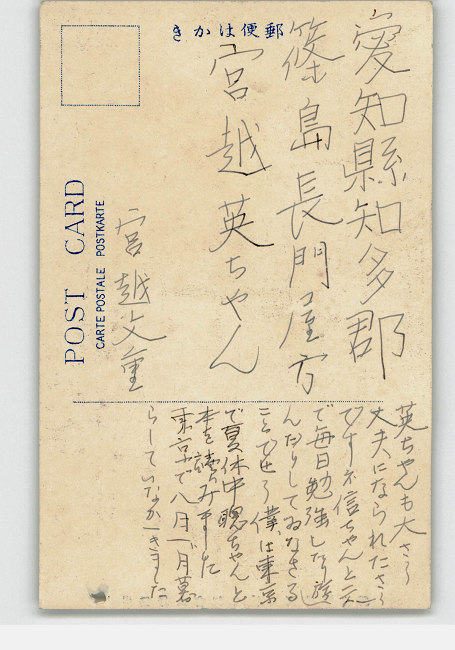 郵便はかき
愛知縣知多郡
篠島長門屋方
宮越英ちゃん
宮越文重
POST CARD
CARTE POSTALE POSTKARTE
英ちゃんも大さう
丈夫になられたさう
ですネ信ちゃんと云
で毎日勉強したり遊
んだりしてゐなさる
ことでせう僕は東京
で夏休中聰ちゃんと
本を読みました
東京で八月一ツ月暮
らしていなかへきました